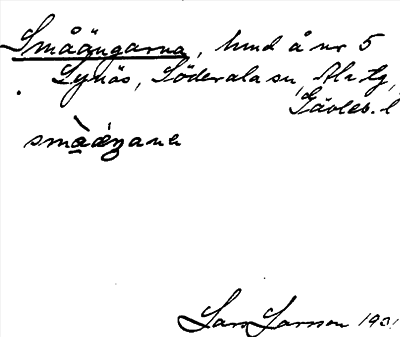 Småängarna, lund å nr 5
Lynäs, Söderala sn, Ala tg,
Gävleb. l
smàǽŋana
Lars Larsson 193